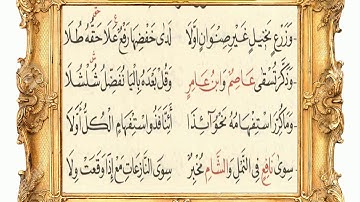 - وَزَرْعٌ نَخِيلٌ غَيْرُ صِنْوَانٍ أَوَّلَا لَدَى خَفْضِهَا رَفْعٌ عُلَا حَقُّهُ طُلَا
- وَذَكَّرَ تُسْقَى عَاصِمٌ وَابْنُ عَامِرٍ وَقُلْ بَعْدَهُ بِالْيَا نُفَضِّلُ شُلْشُلَا
- وَمَا كُرِّرَ اسْتِفْهَامُهُ نَحْوُ آئِذَا أَئِنَّا فَذُو اسْتِفْهَامٍ الْكُلُّ أَوَّلَا
- سِوَى نَافِعٍ فِي النَّمْلِ وَالشَّامِ مُخْبِرٌ سِوَى النَّازِعَاتِ مَعْ إِذَا وَقَعَتْ وِلَا